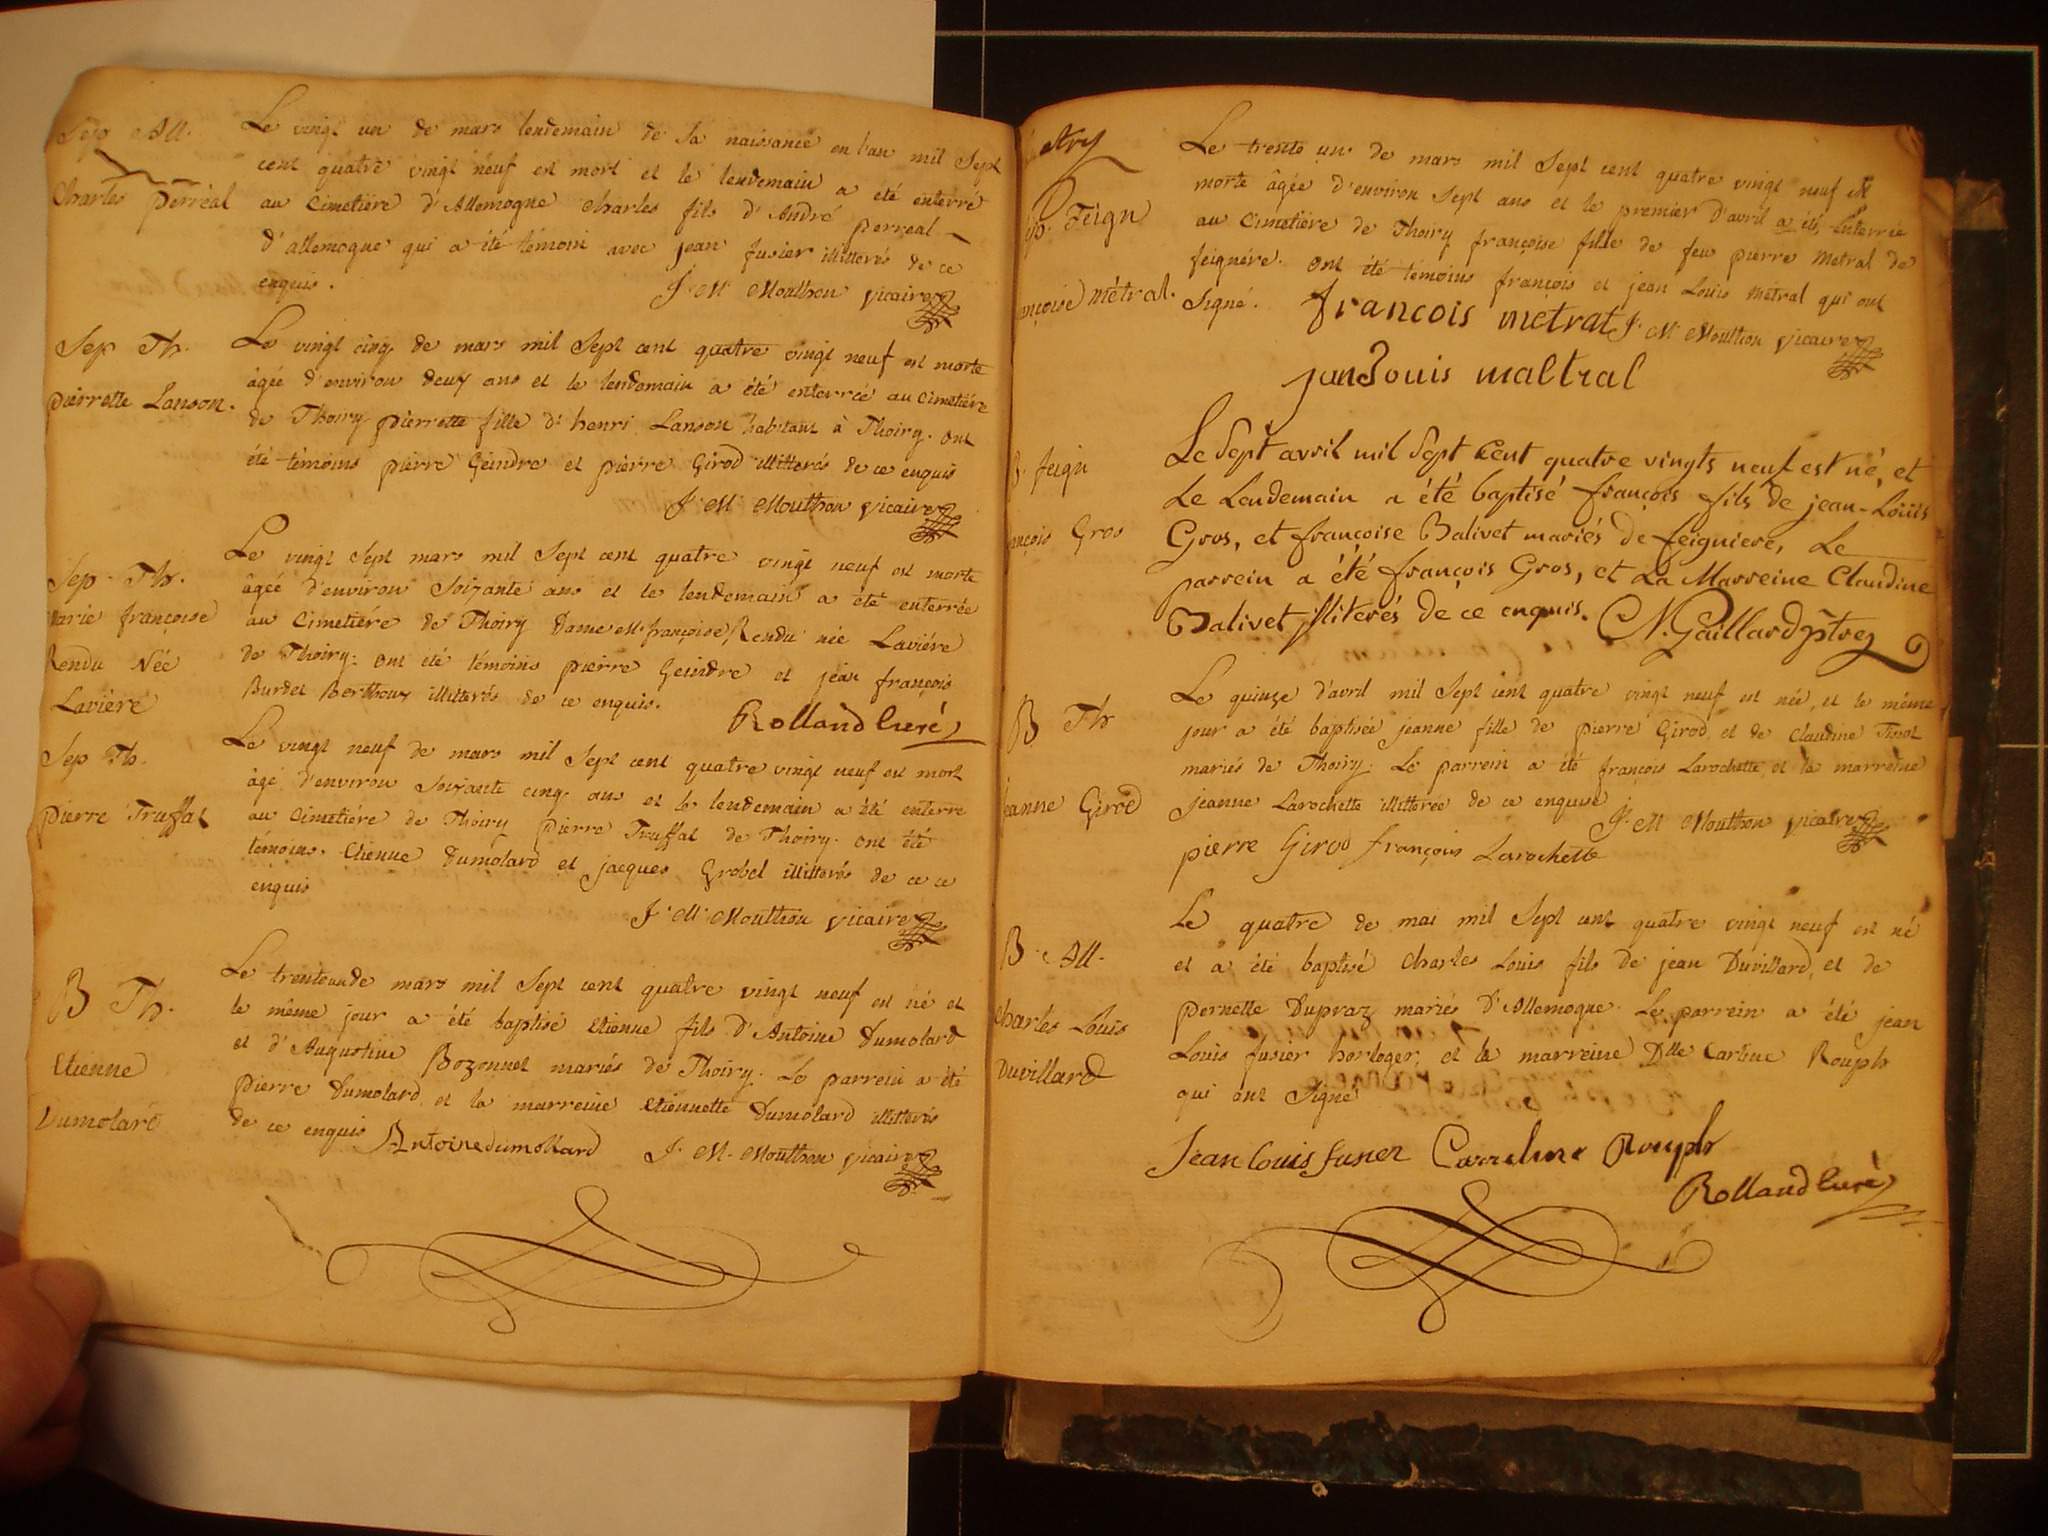 Sep All.
Charles perréal
Le vingt un de mars lendemain de sa naissance en l'an mil Sept
cent quatre vingt neuf est mort et le lendemain a été enterré
au Cimetière d'Allemogne Charles fils d'André perreal
d'allemogne qui a été témoin avec jean fusier illitterés de ce
enquis.
J. M. Mouthon vicaire
Sep Th.
pierrette Lanson.
Le vingt cinq de mars mil Sept cent quatre vingt neuf est morte
âgée d'environ deux ans et le lendemain a été enterrée au cimetière
de Thoiry pierrette fille d'henri Lanson habitant à Thoiry. ont
été témoins pierre Geindre et pierre Girod illitterés de ce enquis
J. M. Mouthon vicaire
Sep. Th.
Marie françoise
Rendu Née
Laviére
Le vingt Sept mars mil Sept cent quatre vingt neuf est morte
âgée d'environ Soixante ans et le lendemain a été enterrée
au Cimetiére de Thoiry Dame françoise Rendu née Laviére
de Thoiry. ont été témoins pierre Geindre et jean françois
Burdet Berthoux illitterés de ce enquis.
Rolland Curé
Sep Th.
pierre Truffat
Le vingt neuf de mars mil Sept cent quatre vingt neuf est mort
âgé d'environ Soixante cinq ans et le lendemain a été enterré
au Cimetiére de Thoiry pierre Truffat de Thoiry. ont été
témoins. Etienne Dumolard et jacques Grobel illitterés de ce ce
enquis
J. M. Mouthon vicaire
B Th.
Etienne
Dumolard
Le trente un de mars mil Sept cent quatre vingt neuf est né et
le même jour a été baptisé Etienne fils d'Antoine Dumolard
et d'Augustine Bozonnet mariés de Thoiry. Le parrein a été
pierre Dumolard et la marreine Etiennette Dumolard illitterés
de ce enquis Antoine dumollard J. M. Mouthon vicaire
Feign
Métral.
Le trente un de mars mil Sept cent quatre vingt neuf est
morte âgée d'environ Sept ans et le premier d'avril a été Enterrée
au Cimetiére de Thoiry françoise fille de feu pierre Metral de
feigniére. ont été témoins françois et jean Louis Métral qui ont
Signé. francois metrat J. M. Mouthon vicaire
jan Louis maltral
B. feign
Gros
Le Sept avril mil Sept Cent quatre vingts neuf est né, et
Le Lendemain a été baptisé françois fils de jean-Louis
Gros, et françoise Balivet mariés de feigniere, Le
parrein a été françois Gros, et La Marreine Claudine
Balivet illiterés de ce enquis. N. Gaillard ptre
B Th
jeanne Girod
Le quinze d'avril mil Sept cent quatre vingt neuf est née, et le même
jour a été baptisée jeanne fille de pierre Girod, et de Claudine
mariés de Thoiry. Le parrein a été françois Larochette et la marreine
jeanne Larochette illitterée de ce enquise
J. M. Mouthon vicaire
pierre Girod françois Larochette
B. All.
Charles Louis
Duvillard
Le quatre de mai mil Sept cent quatre vingt neuf est né
et a été baptisé Charles Louis fils de jean Duvillard, et de
pernette Dupraz mariés d'Allemogne. Le parrein a été jean
Louis fusier horloger, et la marreine Dlle Carline Rouph
qui ont Signé
Jean Louis fusier Carreline Rouph
Rolland Curé